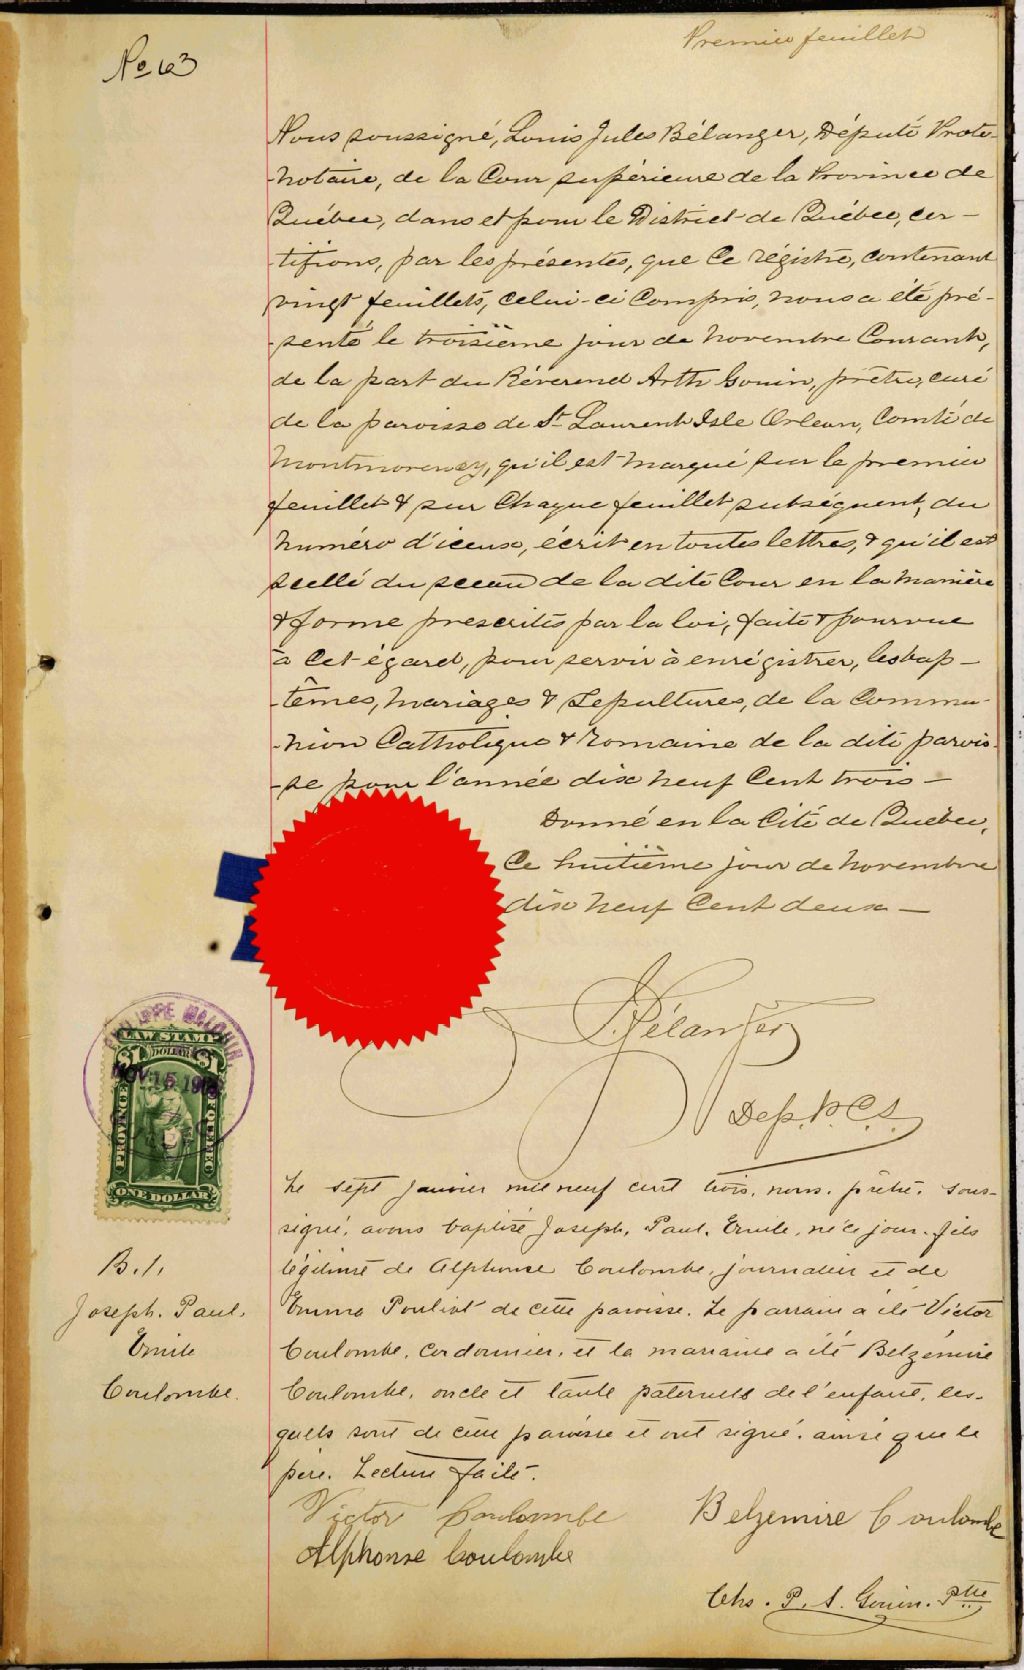 Premier feuillet
No 63
Nous soussigné, Louis Jules Bélanger, Député Proto-
-notaire, de la Cour supérieure de la Province de
Québec, dans et pour le District de Québec, cer-
-tifions, par les présentes, que ce régistre, contenant
vingt feuillets, celui-ci compris, nous a été pré-
-senté le troisième jour de novembre Courant,
de la part du Révérend Arth Gouin, prêtre, curé
de la paroisse de St Laurent Isle Orlean, Comté de
Montmorency, qu'il est marqué sur le premier
feuillet & sur Chaque feuillet subséquent, du
numéro d'iceux, écrit en toutes lettres, & qu'il est
scellé du sceau de la dite Cour en la manière
& forme prescrites par la loi, faite & pourvue
à cet égard, pour servir à enrégistrer, les bap-
-têmes, mariages & Sepultures, de la Commu-
-nion Catholique & Romaine de la dite parois-
-se pour l'année dix neuf Cent trois —
Donné en la Cité de Québec,
Ce huitième jour de novembre
dix neuf Cent deux —
Bélanger
Dep. P.C.S.
LAW STAMP
$1 DOLLAR $1
NOV 15
PROVINCE OF QUEBEC
ONE DOLLAR
B.1.
Joseph. Paul.
Emile
Coulombe.
Le sept janvier mil neuf cent trois, nous, prêtre, sous-
signé, avons baptisé Joseph, Paul, Emile, né ce jour, fils
légitime de Alphonse Coulombe, journalier et de
Emma Pouliot de cette paroisse. Le parrain a été Victor
Coulombe, cordonnier, et la marraine a été Belzémire
Coulombe, oncle et tante paternels de l'enfant, les-
quels sont de cette paroisse et ont signé, ainsi que le
père. Lecture faite.
Victor Coulombe
Belzemire Coulombe
Alphonse Coulombe
Chs. P. A. Gouin. Ptre